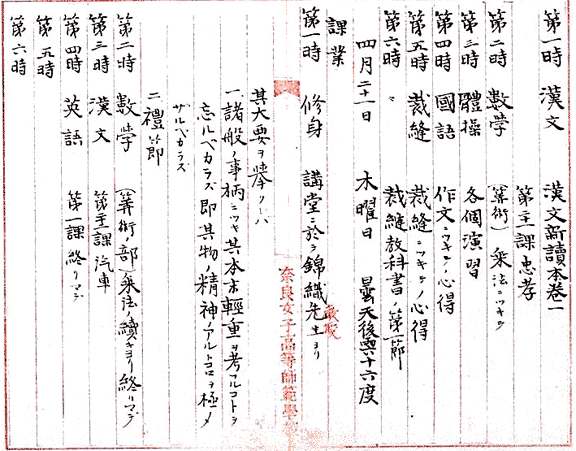 第一時 漢文 漢文新讀本巻一
第十一課 忠孝
第二時 數學 (算術) 乗法ニツキテ
第三時 體操 各個演習
第四時 國語 作文ニツキテノ心得
第五時 裁縫 裁縫ニツキテノ心得
第六時 〃 裁縫教科書ヨリ第一節
四月二十一日 木曜日 曇天後
課業
第一時 修身 講堂ニ於テ錦織先生ヨリ
奈良女子高等師範學校
其大要ヲ擧グレバ
一、諸般ノ事柄ニツキ其本末輕重ヲ考フルコトヲ
忘ルベカラズ即其物ノ精神ノアルトコロヲ極メ
ザルベカラズ
二、禮節
第二時 數學 (算術ノ部) 乗法ノ續キヨリ終リマデ
第三時 漢文 第十二課 汽車
第四時 英語 第一課終リマデ
第五時
第六時